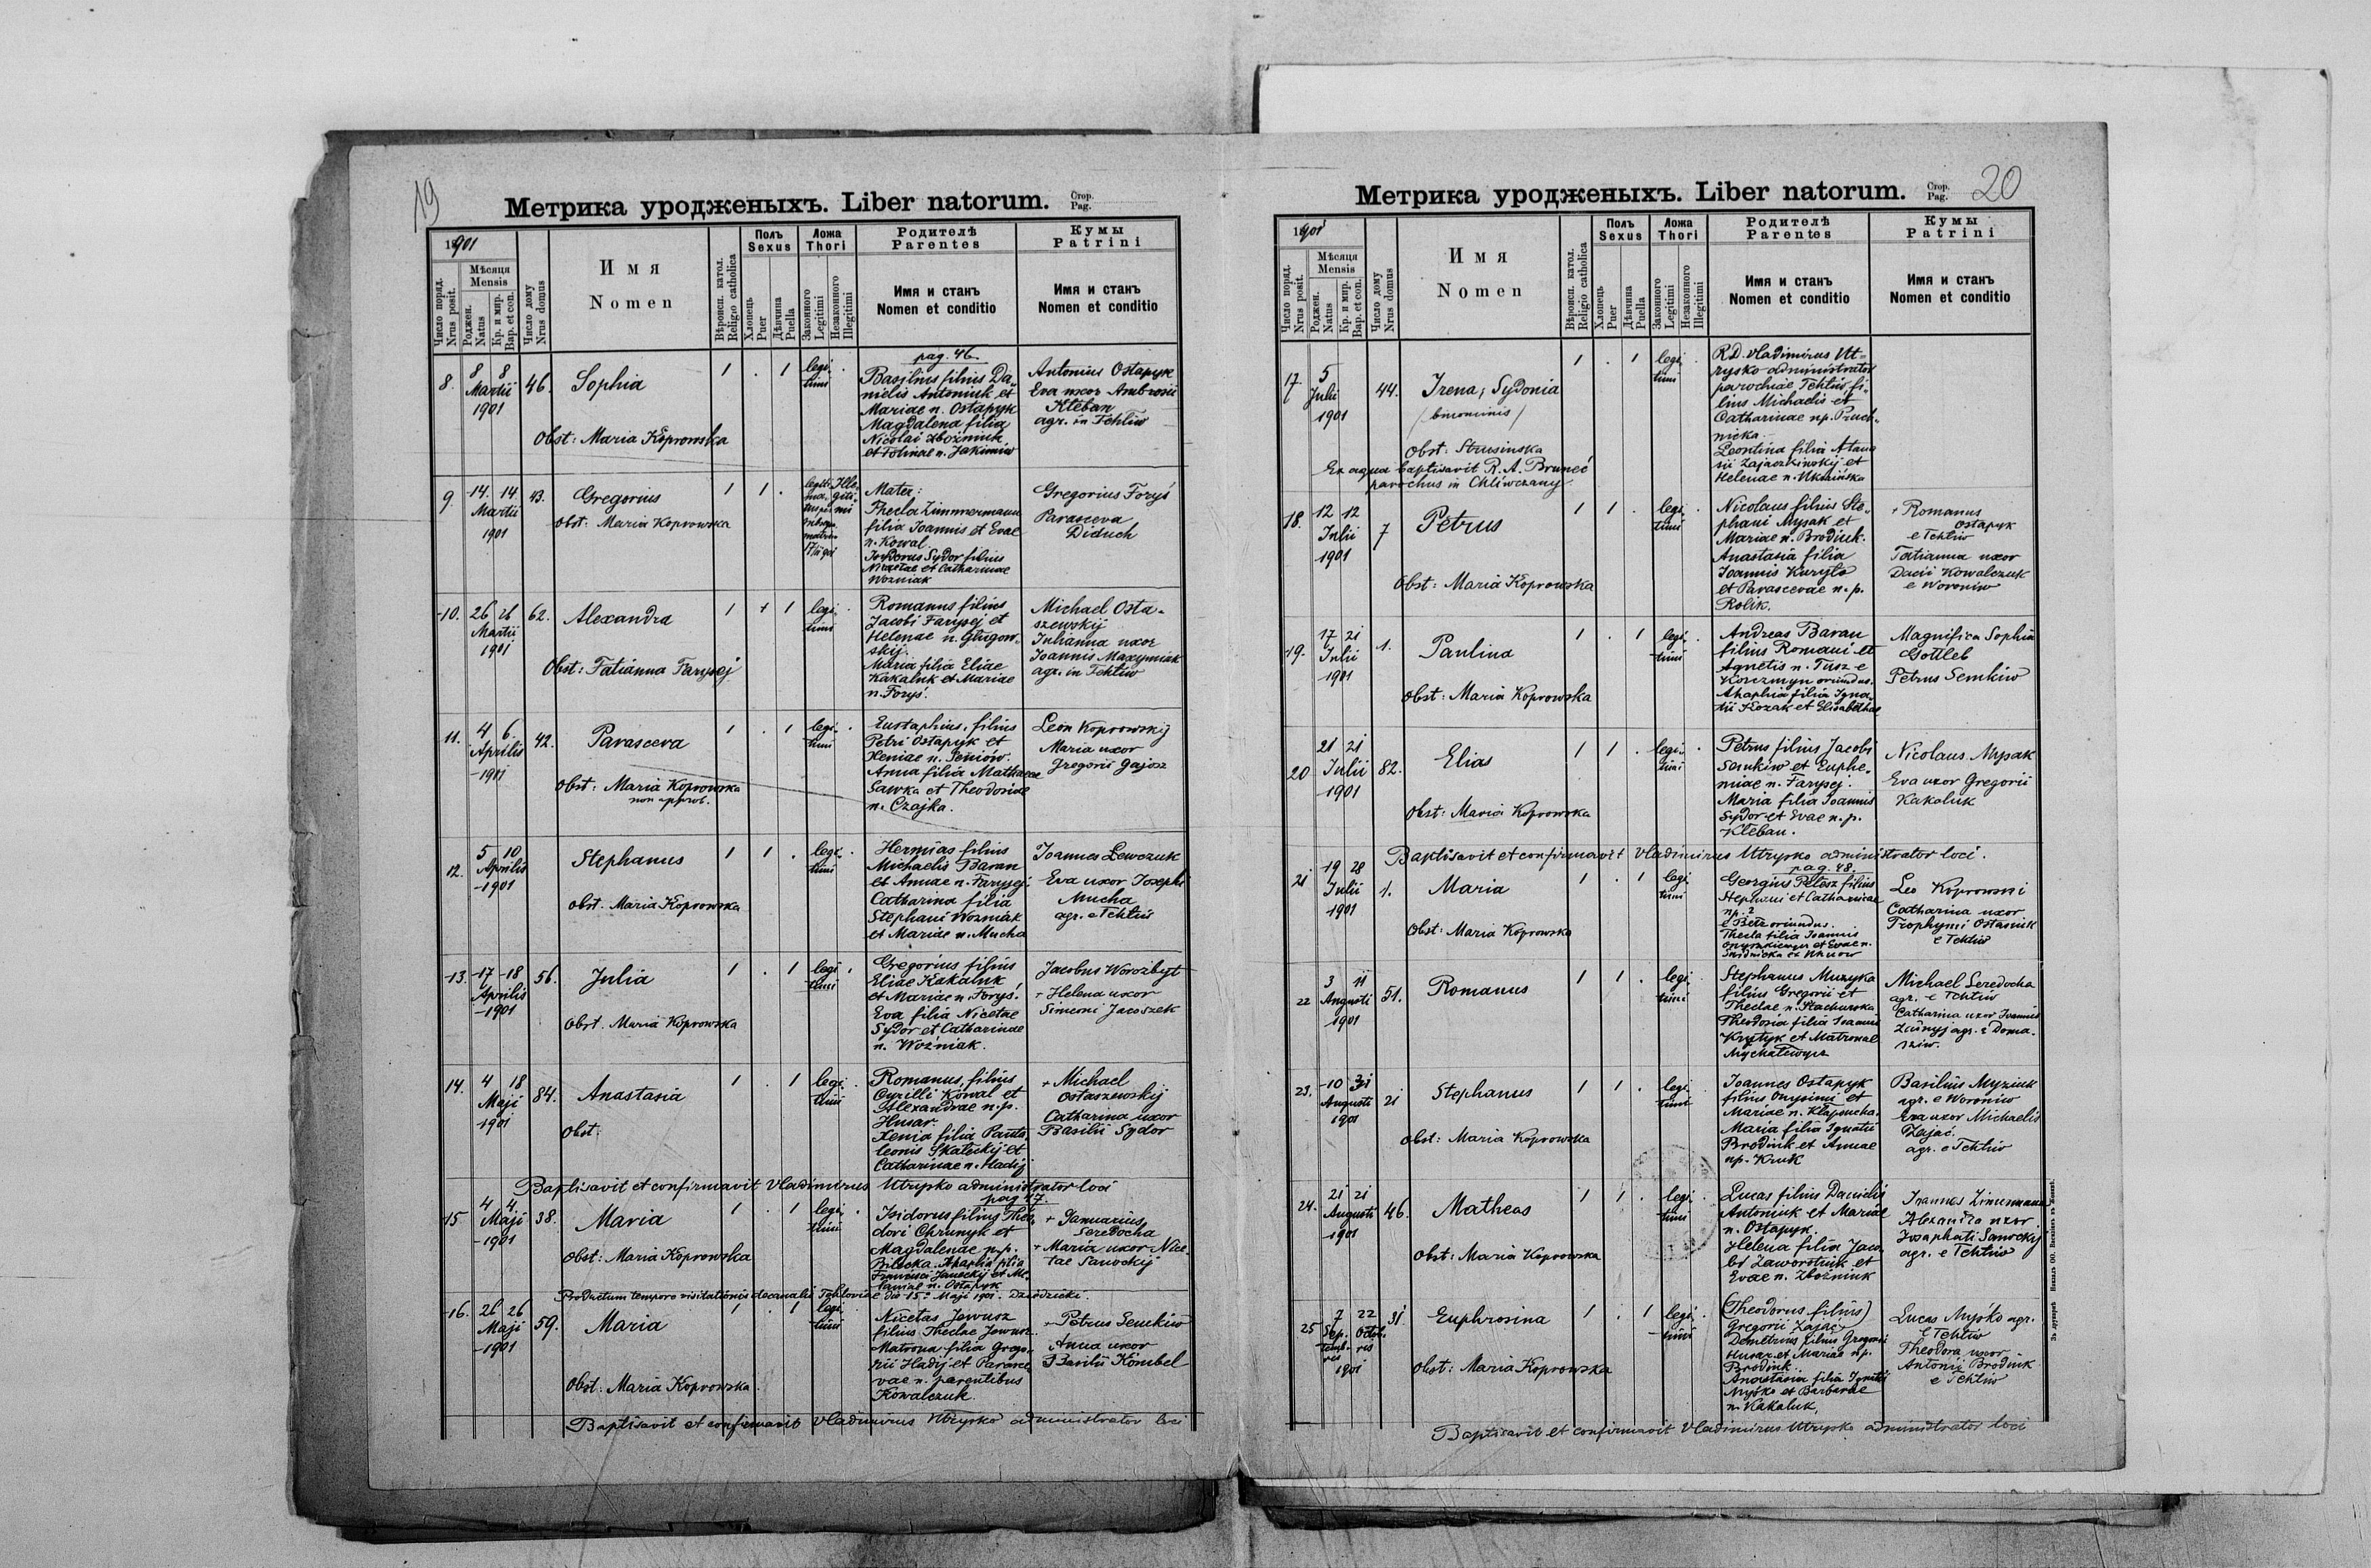 19
Метрика уродженыхъ. Liber natorum.
Стор.
Pag.
1901
Число поряд.
Nrus posit.
Мѣсяця
Mensis
Роджен.
Natus
Кр. и мир.
Bap. et con.
Число дому
Nrus domus
Имя
Nomen
Вѣроисп. катол.
Religio catholica
Полъ
Sexus
Хлопець
Puer
Дѣвчина
Puella
Ложа
Thori
Законного
Legitimi
Незаконного
Illegitimi
Родителѣ
Parentes
Имя и станъ
Nomen et conditio
Кумы
Patrini
Имя и станъ
Nomen et conditio
pag. 46.
8. 8 8 Martii 1901
46. Sophia
Obst: Maria Koprowska
1 . 1 legitimi .
Basilius filius Da-
nielis Antoniuk et
Mariae n. Ostapyk
Magdalena filia
Nicolai Zboźniuk
n. Jakimiw
Antonius Ostapyk
Eva uxor Ambrosii
Kleban
agr. in Tehliw
9. 14. 14 Martii 1901
43. Gregorius
Obst: Maria Koprowska
1 1 .
Mater:
Thecla Zimmermann
filia Joannis et Evae
n. Kowal.
Isydorus Sydor filius
Nicetae et Catharinae
Wozniak
Gregorius Foryś
Parasceva
Diduch
10. 26 26 Martii 1901
62. Alexandra
Obst: Tatianna Farysej
1 + 1 legitimi .
Romanus filius
Jacobi Farysej et
Helenae n. Glugow-
skij.
Maria filia Eliae
Kakaluk et Mariae
n. Foryś.
Michael Osta-
szewskij
Julianna uxor
Joannis Maxymiak
agr. in Tehliw
11. 4 6. Aprilis 1901
42. Parasceva
Obst: Maria Koprowska
non approb.
1 . 1 legitimi .
Eustaphius, filius
Petri Ostapyk et
Xeniae n. Seniów.
Anna filia Mathaeae
Sawka et Theodosiae
n. Czajka.
Leon Koprowskij
Maria uxor
Gregorii Gajosz
12. 5 10 Aprilis 1901
Stephanus
Obst. Maria Koprowska
1 1 . legitimi .
Hermias filius
Michaelis Baran
et Annae n. Farysej.
Catharina filia
Stephani Wozniak
et Mariae n. Mucha
Joannes Lewczuk
Eva uxor Josephi
Mucha
agr. e Tehliw
13. 17 18 Aprilis 1901
56. Julia
Obst. Maria Koprowska
1 . 1 legitimi .
Gregorius filius
Eliae Kakaluk
et Mariae n. Foryś.
Eva filia Nicetae
Sydor et Catharinae
n. Woźniak.
Jacobus Worożbyt
+ Helena uxor
Simeoni Jacoszek
14. 4 18 Maji 1901
84. Anastasia
Obst:
1 . 1 legitimi .
Romanus, filius
Cyrilli Kowal et
Alexandrae n.p.
Husar.
Xenia filia Panta-
leonis Skaleckij et
Catharinae n. Hladij
+ Michael
Ostaszewskij
Catharina uxor
Basilii Sydor
Baptisavit et confirmavit Vladimirus Utrysko administrator loci
pag 47.
15 4 4. Maji 1901
38. Maria
Obst: Maria Koprowska
1 . 1 legitimi .
Isidorus filius Theo-
dori Chrunyk et
Magdalenae n.p.
Bilecka. Ahaphia filia
Francisci Janeckij et Me-
laniae n. Ostapyk
+ Januarius
Seredocha
+ Maria uxor Nice-
tae Sanockij
Productum tempore visitationis decanalis Tehloviae die 15. Maji 1901.
16. 26 26 Maji 1901
59. Maria
Obst: Maria Koprowska.
1 . 1 legitimi
Nicetas Jewusz
filius Theclae Jewusz.
Matrona filia Grego-
rii Hladij et Parasce-
vae n. parentibus
Kowalczuk.
+ Petrus Senkiw
Anna uxor
Basilii Kombel
Baptisavit et confirmavit Vladimirus Utrysko administrator loci
20
Метрика уродженыхъ. Liber natorum.
Стор.
Pag.
1901
Число поряд.
Nrus posit.
Мѣсяця
Mensis
Роджен.
Natus
Кр. и мир.
Bap. et con.
Число дому
Nrus domus
Имя
Nomen
Вѣроисп. катол.
Religio catholica
Полъ
Sexus
Хлопець
Puer
Дѣвчина
Puella
Ложа
Thori
Законного
Legitimi
Незаконного
Illegitimi
Родителѣ
Parentes
Имя и станъ
Nomen et conditio
Кумы
Patrini
Имя и станъ
Nomen et conditio
17. 5 Julii 1901
44. Irena, Sydonia
/binominis/
Obst: Strusinska
Ex aqua baptisavit R. A. Bruneć
parochus in Chliwczany.
1 . 1 legitimi .
R.D. Vladimirus Ut-
rysko administrator
parochiae Tehliw fi-
lius Michaelis et
Catharinae np. Pruch-
nicka.
Leontina filia Atana
sii Zajaczkiwskij et
Helenae n. Ukraińska
18. 12 12 Julii 1901
7 Petrus
Obst: Maria Koprowska
1 1 . legitimi
Nicolaus filius Ste-
phani Mysak et
Mariae n. Brodiuk.
Anastasia filia
Joannis Kuryło
et Parascevae n. p.
Rolik.
+ Romanus
Ostapyk
e Tehliw
Tatianna uxor
Dacii Kowalczuk
e Woroniw
19. 17 21 Julii 1901
1. Paulina
Obst: Maria Koprowska
1 . 1 legitimi .
Andreas Baran
filius Romani et
Agnetis n. Tusz e
Korczmyn oriundus.
Ahaphia filia Igna-
tii Kozak et Elisabethae
Magnifica Sophia
Gottleb
Petrus Semkiw
20 21 21 Julii 1901
82. Elias
Obst: Maria Koprowska
1 1 . legitimi .
Petrus filius Jacobi
Senkiw et Euphe-
miae n. Farysej.
Maria filia Joannis
Sydor et Evae n. p.
Kleban.
Nicolaus Mysak
Eva uxor Gregorii
Kakaluk
Baptisavit et confirmavit Vladimirus Utrysko administrator loci.
pag. 48.
21 19 28 Julii 1901
1. Maria
Obst: Maria Koprowska
1 . 1 legitimi
Georgius Petesz filius
Stephani et Catharinae
np. ?
e Betz oriundus.
Thecla filia Joannis
et Evae n.
Leo Koprowski
Catharina uxor
Trophymi Ostasiuk
e Tehliw
22 3 11 Augusti 1901
51. Romanus
1 1 . legitimi
Stephanus Muzyka
filius Gregorii et
Theclae n. Stachurska
Theodosia filia Joannis
Krystyk et Matronae
Mychalewycz
Michael Seredocha
agr. e Tehliw
Catharina uxor Joannis
agr. e Doma-
sziw.
23. 10 31 Augusti 1901
21 Stephanus
Obst: Maria Koprowska
1 1 . legitimi
Joannes Ostapyk
filius Onysimi et
Mariae n. Kłapoucha.
Maria filia Ignatii
Brodiuk et Annae
np. Kruk
Basilius Myziuk
agr. e Woroniw
Eva uxor Michaelis
Zajać.
agr. e Tehliw
24. 21 21 Augusti 1901
46. Matheas
Obst: Maria Koprowska
1 1 . legitimi
Lucas filius Danielis
Antoniuk et Mariae
n. Ostapyk.
Helena filia Jaco
bi Zaworotiuk et
Evae n. Zboźniuk
Joannes Zimermann
Alexandra uxor
Josaphati Sanockij
agr. e Tehliw
25 7 22 Septembris Octobris 1901
31 Euphrosina
Obst: Maria Koprowska
1 . 1 legitimi .
(Theodorus filius)
Gregorii Zajać
Demetrius filius Gregorii
Husar et Mariae np.
Brodiuk.
Anastasia filia Ignatii
Myśko et Barbarae
n. Kakaluk.
Lucas Myśko agr.
e Tehliw
Theodora uxor
Antonii Brodiuk
e Tehliw
Baptisavit et confirmavit Vladimirus Utrysko administrator loci